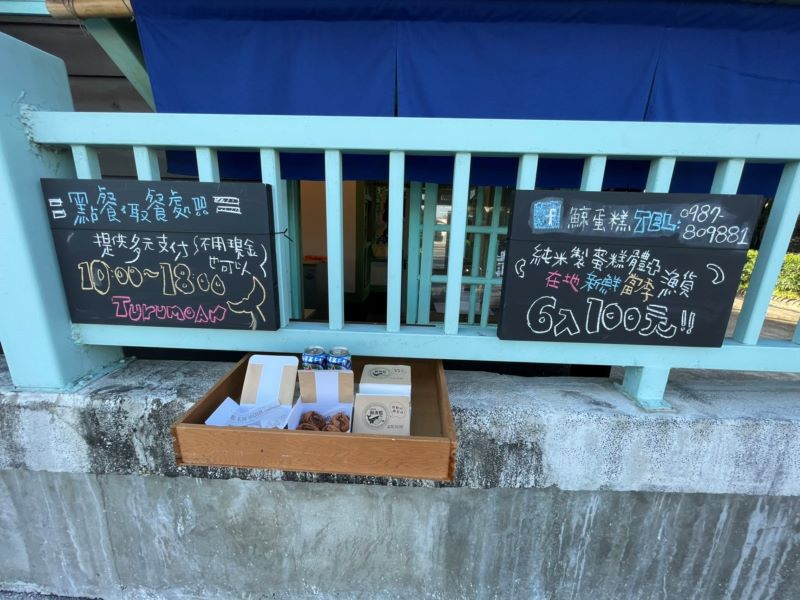 點餐取餐處
提供多元支付(不用現金
也可以)
10:00~18:00
TURUMOAN
f 鯨蛋糕 TEL:0987-
809881
純米製蛋糕體
在地新鮮 漁貨
6入100元!!